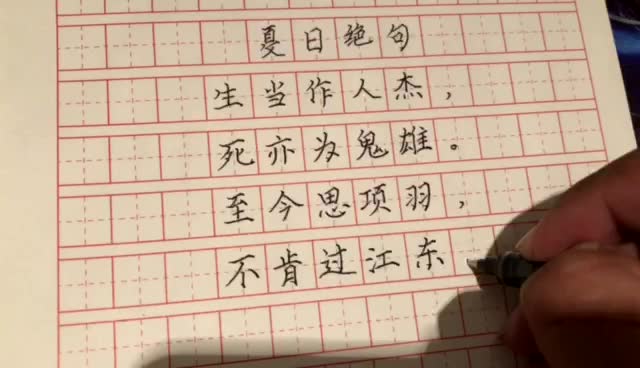 夏日绝句
生当作人杰，
死亦为鬼雄。
至今思项羽，
不肯过江东